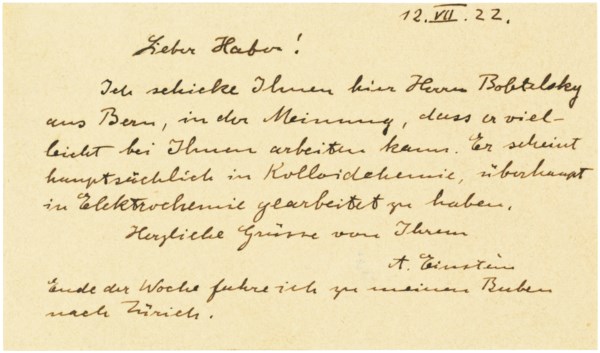 12.VII.22.
Lieber Haber!
Ich schicke Ihnen hier Herrn Bobtelsky
aus Bern, in der Meinung, dass er viel-
leicht bei Ihnen arbeiten kann. Er scheint
hauptsächlich in Kolloidchemie, überhaupt
in Elektrochemie gearbeitet zu haben.
Herzliche Grüsse von Ihrem
A. Einstein
Ende der Woche fahre ich zu meinen Buben
nach Zürich.